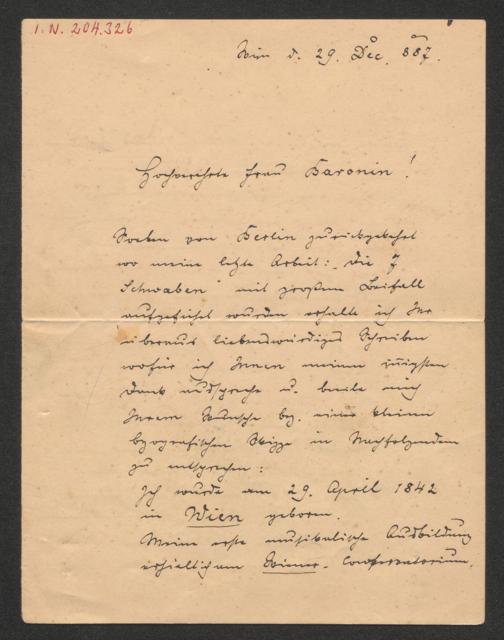 I. N. 204.326
Wien d. 29. Dec. 887.
Hochverehrte Frau Baronin!
Soeben von Berlin zurückgekehrt
wo meine letzte Arbeit: „Die 7
Schwaben" mit großem Beifall
aufgeführt wurden erhalte ich Ihr
überaus liebenswürdiges Schreiben
wofür ich Ihnen meinen innigsten
Dank ausspreche u. beeile mich
Ihrem Wunsche bez. einer kleinen
byografischen Skizze in Nachfolgendem
zu entsprechen:
Ich wurde am 29. April 1842
in Wien geboren.
Meine erste musikalische Ausbildung
erhielt ich am Wiener-Conservatorium.